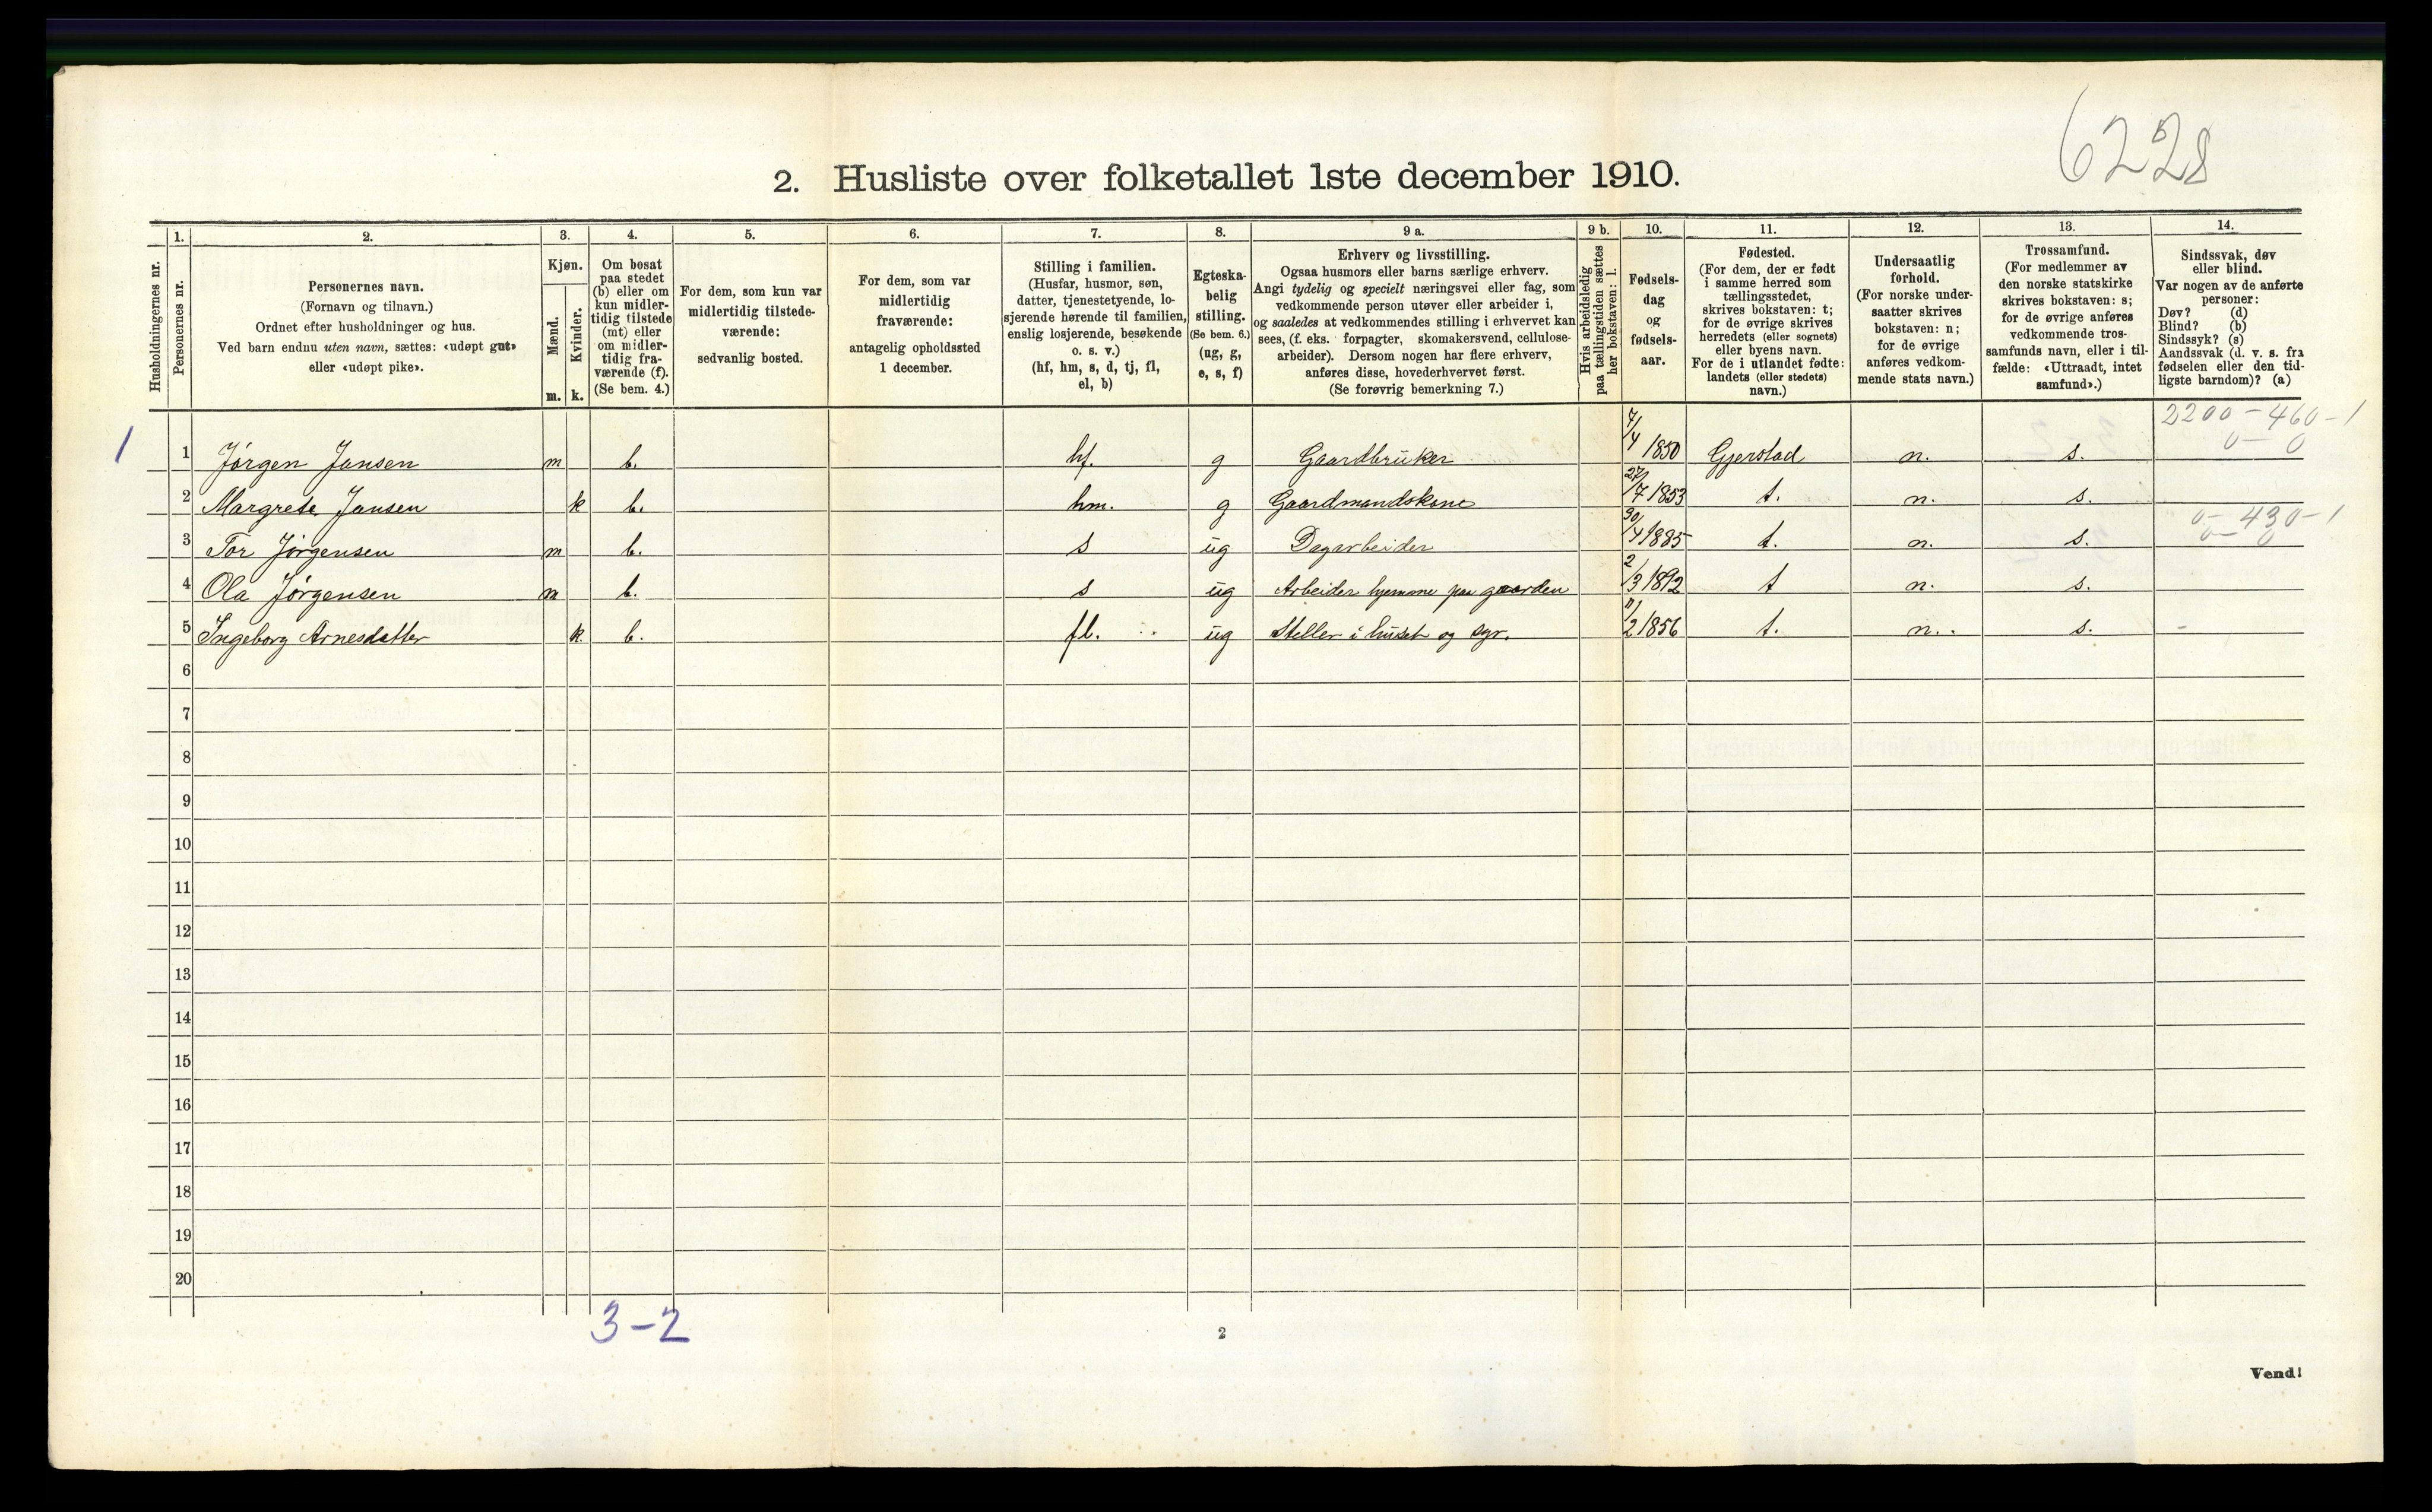 6228
2. Husliste over folketallet 1ste december 1910.
Husholdningernes nr.
1.
Personernes nr.
2.
Personernes navn.
(Fornavn og tilnavn.)
Ordnet efter husholdninger og hus.
Ved barn endnu uten navn, sættes: «udøpt gut»
eller «udøpt pike».
3.
Kjøn.
Mænd.
Kvinder.
m. k.
4.
Om bosat
paa stedet
(b) eller om
kun midler-
tidig tilstede
(mt) eller
om midler-
tidig fra-
værende (f).
(Se bem. 4.)
5.
For dem, som kun var
midlertidig tilstede-
værende:
sedvanlig bosted.
6.
For dem, som var
midlertidig
fraværende:
antagelig opholdssted
1 december.
7.
Stilling i familien.
(Husfar, husmor, søn,
datter, tjenestetyende, lo-
sjerende hørende til familien,
enslig losjerende, besøkende
o. s. v.)
(hf, hm, s, d, tj, fl,
el, b)
8.
Egteska-
belig
stilling.
(Se bem. 6.)
(ug, g,
e, s, f)
9 a.
Erhverv og livsstilling.
Ogsaa husmors eller barns særlige erhverv.
Angi tydelig og specielt næringsvei eller fag, som
vedkommende person utøver eller arbeider i,
og saaledes at vedkommendes stilling i erhvervet kan
sees, (f. eks. forpagter, skomakersvend, cellulose-
arbeider). Dersom nogen har flere erhverv,
anføres disse, hovederhvervet først.
(Se forøvrig bemerkning 7.)
9 b.
Hvis arbeidsledig
paa tællingstiden sættes
her bokstaven: l.
10.
Fødsels-
dag
og
fødsels-
aar.
11.
Fødested.
(For dem, der er født
i samme herred som
tællingsstedet,
skrives bokstaven: t;
for de øvrige skrives
herredets (eller sognets)
eller byens navn.
For de i utlandet fødte:
landets (eller stedets)
navn.)
12.
Undersaatlig
forhold.
(For norske under-
saatter skrives
bokstaven: n;
for de øvrige
anføres vedkom-
mende stats navn.)
13.
Trossamfund.
(For medlemmer av
den norske statskirke
skrives bokstaven: s;
for de øvrige anføres
vedkommende tros-
samfunds navn, eller i til-
fælde: «Uttraadt, intet
samfund».)
14.
Sindssvak, døv
eller blind.
Var nogen av de anførte
personer:
Døv? (d)
Blind? (b)
Sindssyk? (s)
Aandssvak (d. v. s. fra
fødselen eller den tid-
ligste barndom)? (a)
2200-460-1
0-0
1 1 Jørgen Jansen m b. hf. g Gaardbruker 7/4 1850 Gjerstad n. s.
2 Margrete Jansen k b. hm. g Gaardmandskone 27/7 1853 t. n. s.
0-430-1
0-0
3 Tor Jørgensen m b. s ug Dagarbeider 30/4 1885 t. n. s.
4 Ola Jørgensen m b. s ug Arbeider hjemme paa gaarden 2/3 1892 t n. s.
5 Ingeborg Arnesdatter k b. fl. ug Steller i huset og syr. 11/2 1856 t. n. s. -
6
7
8
9
10
11
12
13
14
15
16
17
18
19
20
3-2
2
Vend!